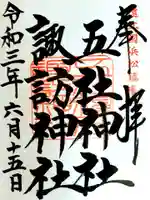 奉拝
五社神社
諏訪神社
令和三年六月十五日